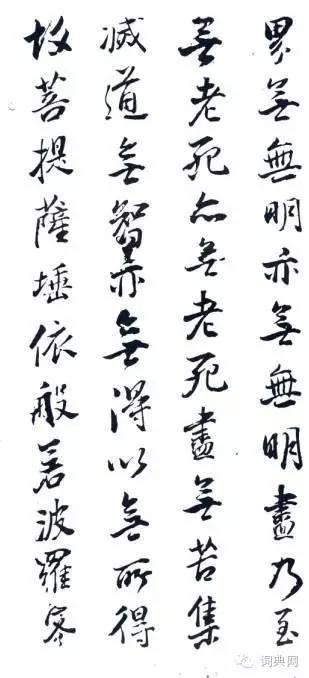 界無無明亦無無明盡乃至
無老死亦無老死盡無苦集
滅道無智亦無得以無所得
故菩提薩埵依般若波羅蜜
词典网